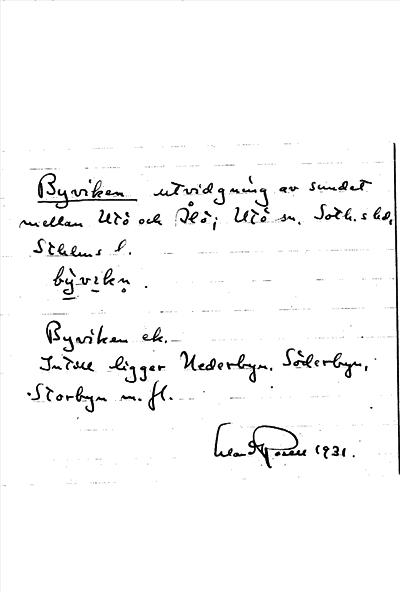 Byviken utvidgning av sundet
mellan Utö och Ålö; Utö sn. Soth.s hd,
Sthlms l.
by̍vikn̥.
Byviken ek.
Intill ligger Nederbyn, Söderbyn,
Storbyn m. fl.
Rosell 1931.